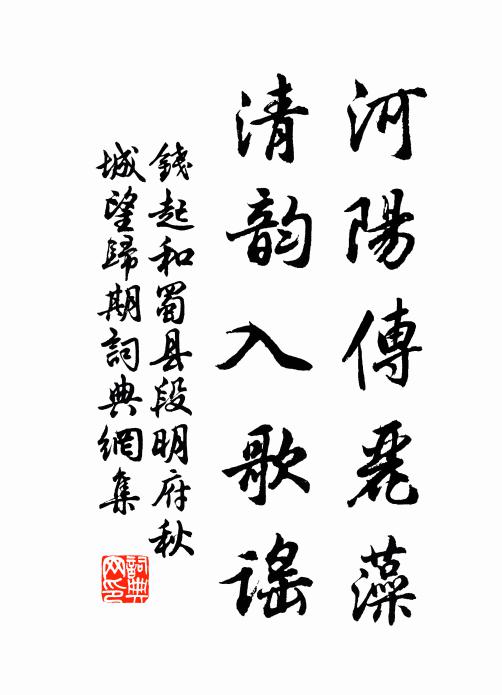 河陽傳麗藻
清韵入歌謠
錢起和蜀县段明府秋
城望歸期詞典網集
詞典
网印